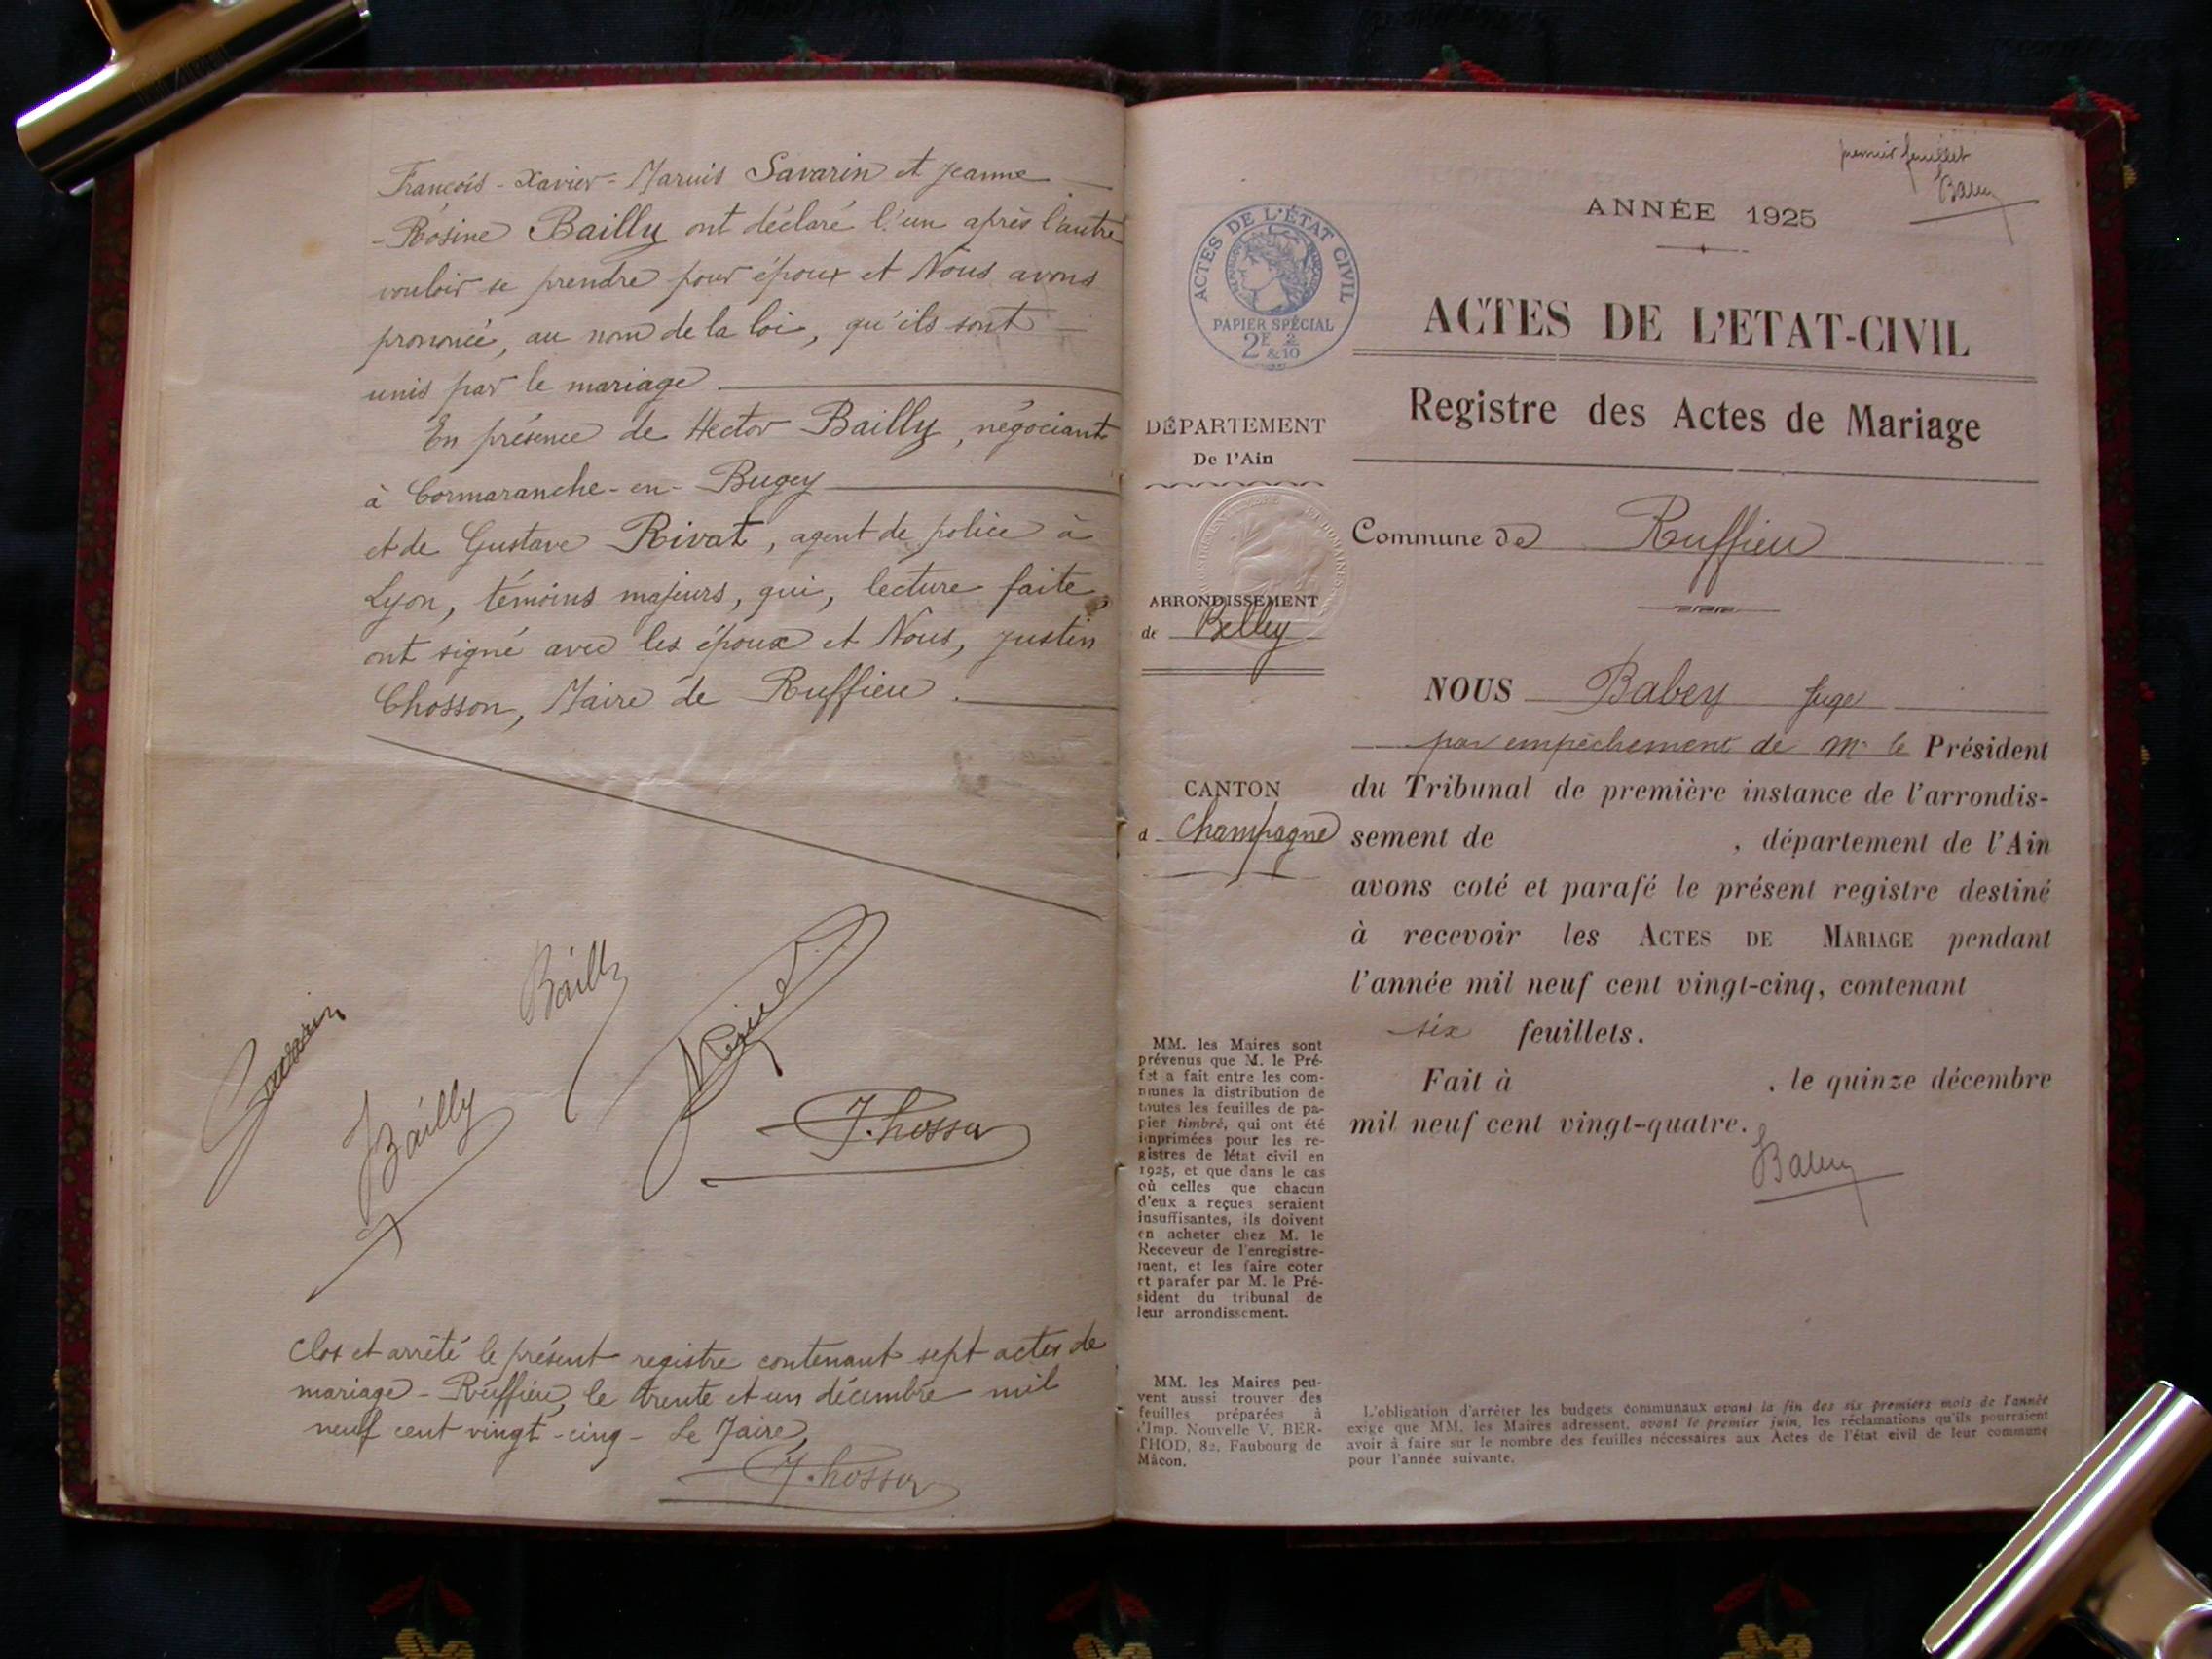 François-Xavier-Marius Savarin et Jeanne
-Rosine Bailly ont déclaré l'un après l'autre
vouloir se prendre pour époux et Nous avons
prononcé, au nom de la loi, qu'ils sont
unis par le mariage
En présence de Hector Bailly, négociant
à Cormaranche-en-Bugey
et de Gustave Rivat, agent de police à
Lyon, témoins majeurs, qui, lecture faite,
ont signé avec les époux et Nous, Justin
Chosson, Maire de Ruffieu.
Savarin
Bailly
JBailly
J.Chosson
Clos et arrêté le présent registre contenant sept actes de
mariage - Ruffieu, le trente et un décembre mil
neuf cent vingt-cinq - Le Maire,
J.Chosson
premier feuillet
Babey
ANNÉE 1925
ACTES DE L'ÉTAT CIVIL
PAPIER SPÉCIAL
2F 2
&10
ACTES DE L'ETAT-CIVIL
Registre des Actes de Mariage
DÉPARTEMENT
De l'Ain
Commune de Ruffieu
ARRONDISSEMENT
de Belley
CANTON
d Champagne
NOUS Babey juge
par empêchement de Mr le Président
du Tribunal de première instance de l'arrondis-
sement de , département de l'Ain
avons coté et parafé le présent registre destiné
à recevoir les ACTES DE MARIAGE pendant
l'année mil neuf cent vingt-cinq, contenant
six feuillets.
Fait à , le quinze décembre
mil neuf cent vingt-quatre.
Babey
MM. les Maires sont
prévenus que M. le Pré-
fet a fait entre les com-
munes la distribution de
toutes les feuilles de pa-
pier timbré, qui ont été
imprimées pour les re-
gistres de létat civil en
1925, et que dans le cas
où celles que chacun
d'eux a reçues seraient
insuffisantes, ils doivent
en acheter chez M. le
Receveur de l'enregistre-
ment, et les faire coter
et parafer par M. le Pré-
sident du tribunal de
leur arrondissement.
MM. les Maires peu-
vent aussi trouver des
feuilles préparées à
l'Imp. Nouvelle V. BER-
THOD, 82, Faubourg de
Mâcon.
L'obligation d'arrêter les budgets communaux avant la fin des six premiers mois de l'année
exige que MM. les Maires adressent, avant le premier juin, les réclamations qu'ils pourraient
avoir à faire sur le nombre des feuilles nécessaires aux Actes de l'état civil de leur commune
pour l'année suivante.